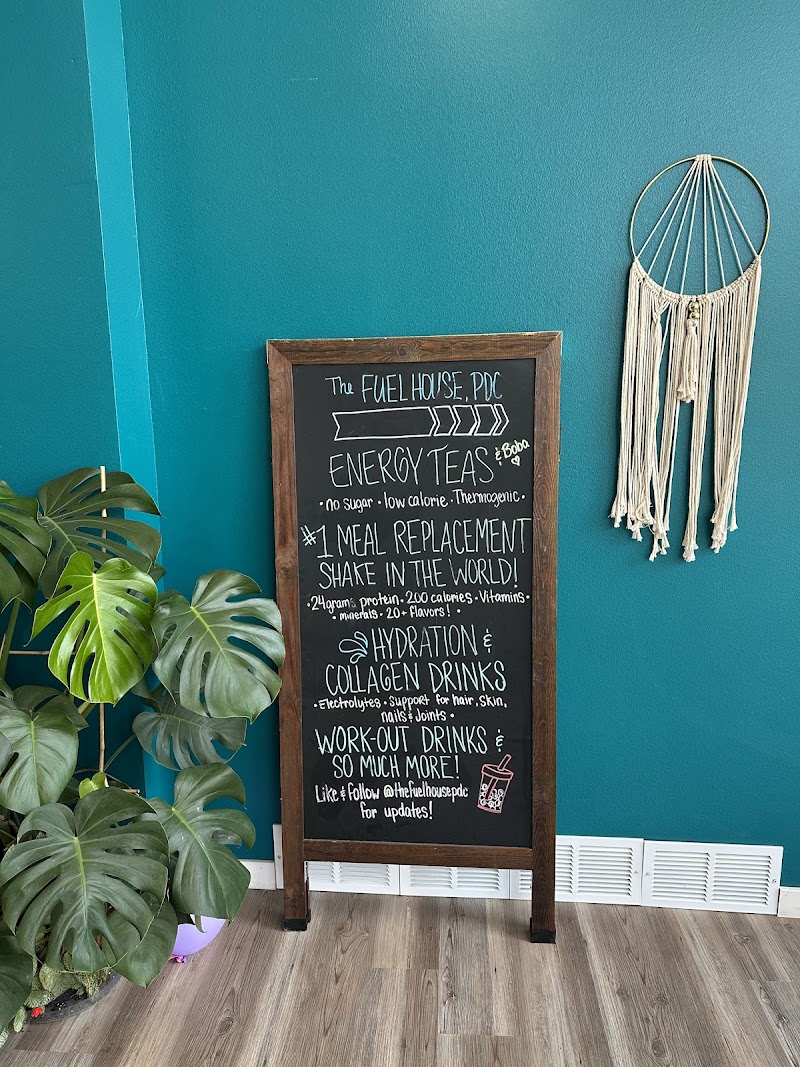 The FUEL HOUSE, PDC
ENERGY TEAS & Boba
• no sugar • low calorie • Thermogenic •
#1 MEAL REPLACEMENT
SHAKE IN THE WORLD!
• 24grams protein • 200 calories • Vitamins •
• minerals • 20+ flavors! •
HYDRATION &
COLLAGEN DRINKS
• Electrolytes • Support for hair, Skin,
nails & Joints •
WORK-OUT DRINKS &
SO MUCH MORE!
Like & Follow @thefuelhousepdc
for updates!